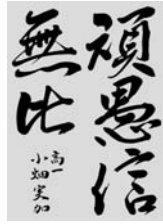 頑愚信
無比
高一
小畑実加